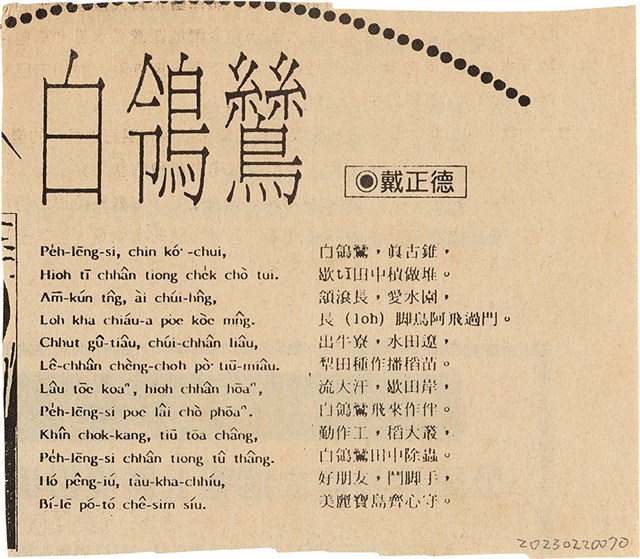 白鴒鷥
◉戴正德
Pe̍h-lēng-si, chin kó·-chui,
白鴒鷥，眞古錐，
Hioh tī chhân tiong che̍k chò tui.
歇tī田中積做堆。
Ām-kún tn̂g, ài chúi-hn̂g,
頷滾長，愛水園，
Loh kha chiáu-a poe kòe mn̂g.
長 (loh) 脚鳥阿飛過門。
Chhut gû-tiâu, chúi-chhân liâu,
出牛寮，水田遼，
Lê-chhân chèng-choh pò· tiū-miâu.
犁田種作播稻苗。
Lâu tōe koaⁿ, hioh chhân hōaⁿ,
流大汗，歇田岸，
Pe̍h-lēng-si poe lâi chò phōaⁿ.
白鴒鷥飛來作伴。
Khîn chok-kang, tiū tōa châng,
勤作工，稻大叢，
Pe̍h-lēng-si chhân tiong tû thâng.
白鴒鷥田中除蟲。
Hó pêng-iú, tàu-kha-chhiú,
好朋友，鬥脚手，
Bí-lē pó-tó chê-sim siu.
美麗寶島齊心守。
20230220070